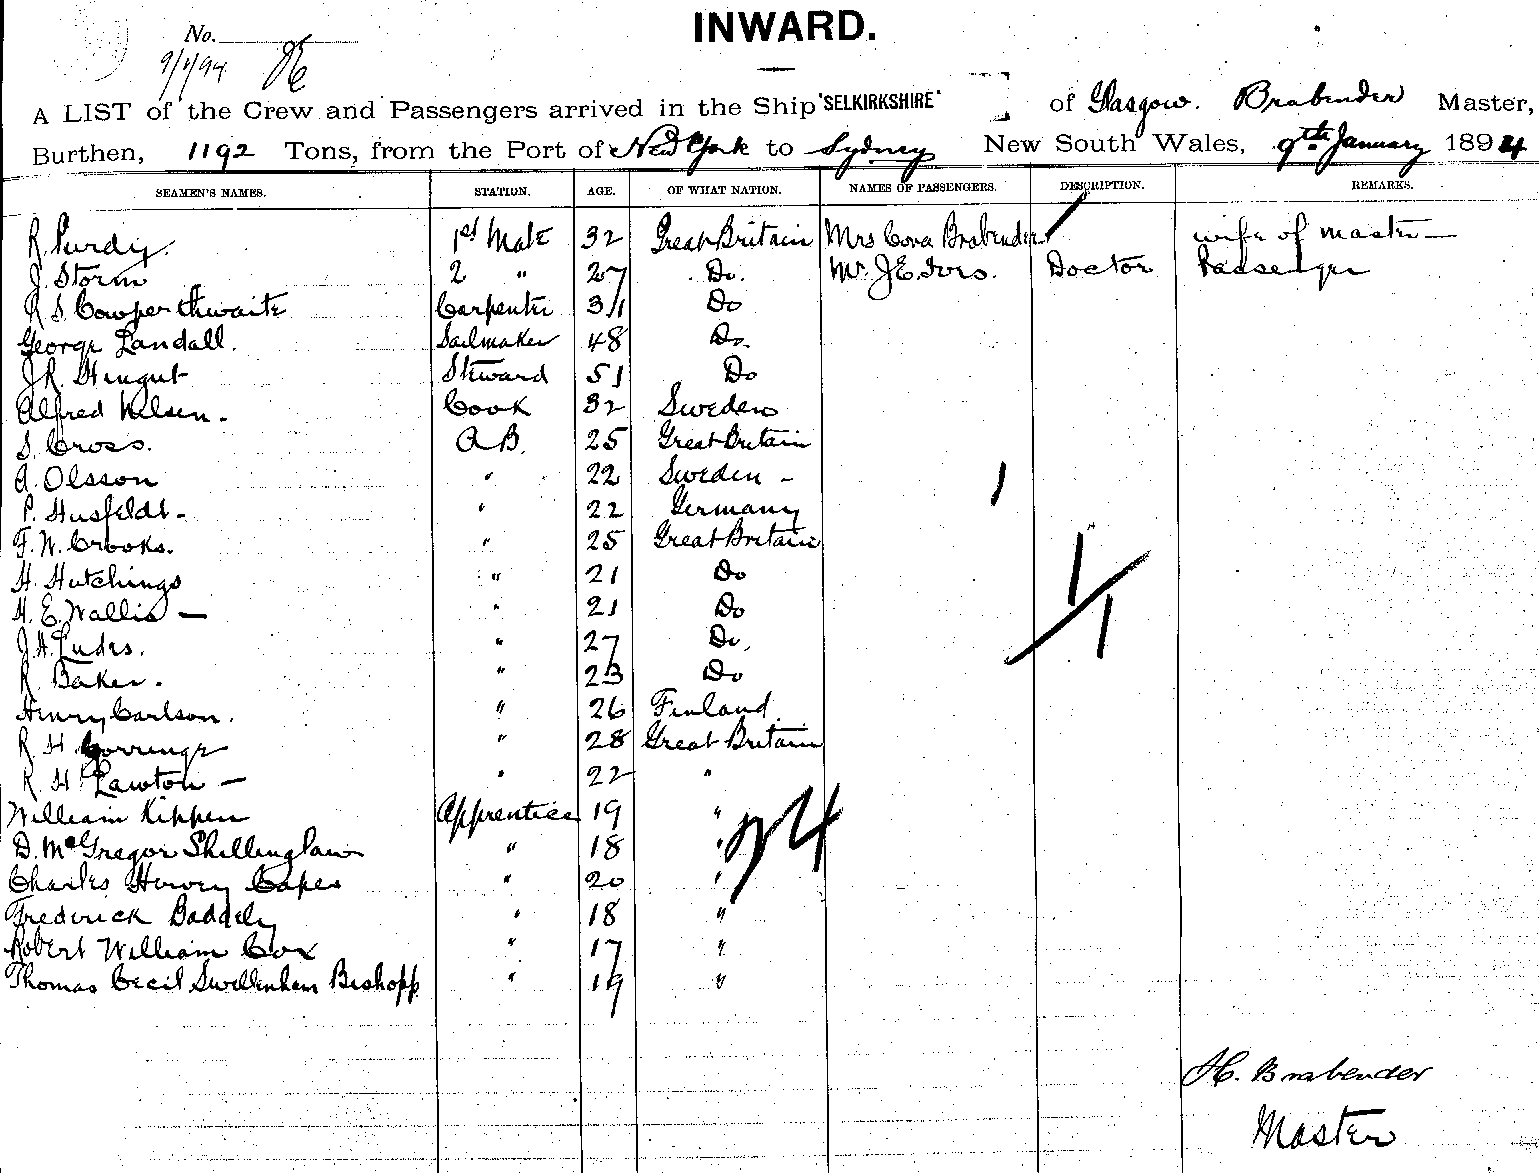 INWARD.
No.
9/1/94 86
A LIST of the Crew and Passengers arrived in the Ship "SELKIRKSHIRE" of Glasgow. Brabender Master,
Burthen, 1192 Tons, from the Port of New York to Sydney New South Wales, 9th January 1894
SEAMEN'S NAMES. STATION. AGE. OF WHAT NATION. NAMES OF PASSENGERS. DESCRIPTION. REMARKS.
R Purdy. 1st Mate 32 Great Britain Mrs Cora Brabender wife of master
J. Storm 2 " 27 Do. Mr. J E. Doctor Passenger
R S Cowperthwaite Carpenter 31 Do
George Landall. Sailmaker 48 Do.
J R. Steward 51 Do
Alfred Nilsen. Cook 32 Sweden
S. Cross. A.B. 25 Great Britain
A. Olsson " 22 Sweden -
P. Husfeldt - " 22 Germany
F. W. Crooks. " 25 Great Britain
H. Hutchings " 21 Do
H. E. Wallis — " 21 Do
J. H. Luders. " 27 Do.
R. Baker. " 23 Do
Henry Carlson. " 26 Finland
R H Gorringe " 28 Great Britain
R. H. Lawton — " 22 "
William Kippen Apprentice 19 "
D. McGregor Shillinglaw " 18 "
Charles Hervey Capes " 20 "
Frederick Baddely " 18 "
Robert William Cox " 17 "
Thomas Cecil Swettenham Bishopp " 19 "
24
1
1/1
H. Brabender
Master